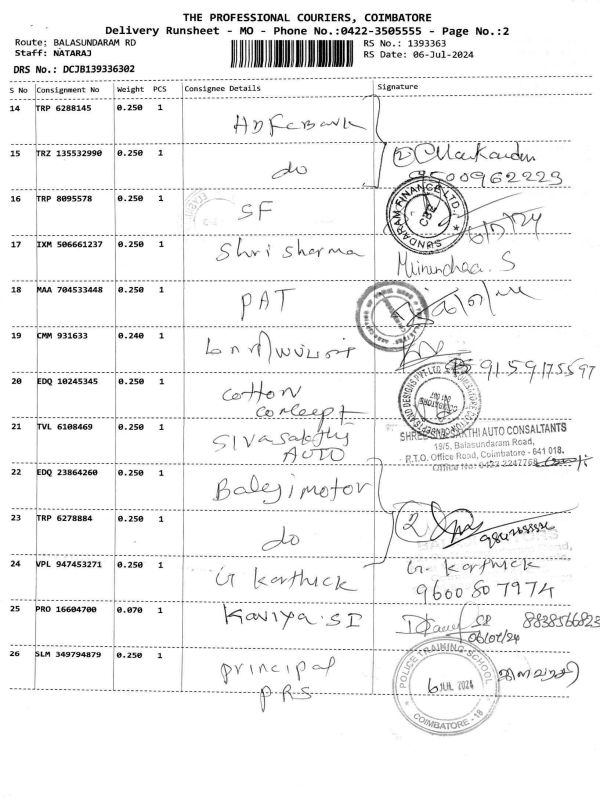 THE PROFESSIONAL COURIERS, COIMBATORE
Delivery Runsheet - MO - Phone No.:0422-3505555 - Page No.:2
Route: BALASUNDARAM RD
RS No.: 1393363
Staff: NATARAJ
RS Date: 06-Jul-2024
DRS No.: DCJB139336302
S No Consignment No Weight PCS Consignee Details Signature
14 TRP 6288145 0.250 1
HDFC Bank
15 TRZ 135532990 0.250 1
do
9500962223
16 TRP 8095578 0.250 1
SF
SUNDARAM FINANCE LTD.
CBE
17 IXM 506661237 0.250 1
Shri sharma
18 MAA 704533448 0.250 1
PAT
19 CMM 931633 0.240 1
9159175597
20 EDQ 10245345 0.250 1
cotton
concept
21 TVL 6108469 0.250 1
Sivasakthi
AUTO
SAKTHI AUTO CONSULTANTS
19/5, Balasundaram Road,
R.T.O. Office Road, Coimbatore - 641 018.
Office No: 0422 2247768
22 EDQ 23864260 0.250 1
Balaji motor
23 TRP 6278884 0.250 1
do
24 VPL 947453271 0.250 1
G Karthick
G. Karthick
9600807974
25 PRO 16604700 0.070 1
Kaviya. SI
SR
06/07/24
8838566823
26 SLM 349794879 0.250 1
principal
PRS
POLICE TRAINING SCHOOL
6 JUL 2024
COIMBATORE - 18